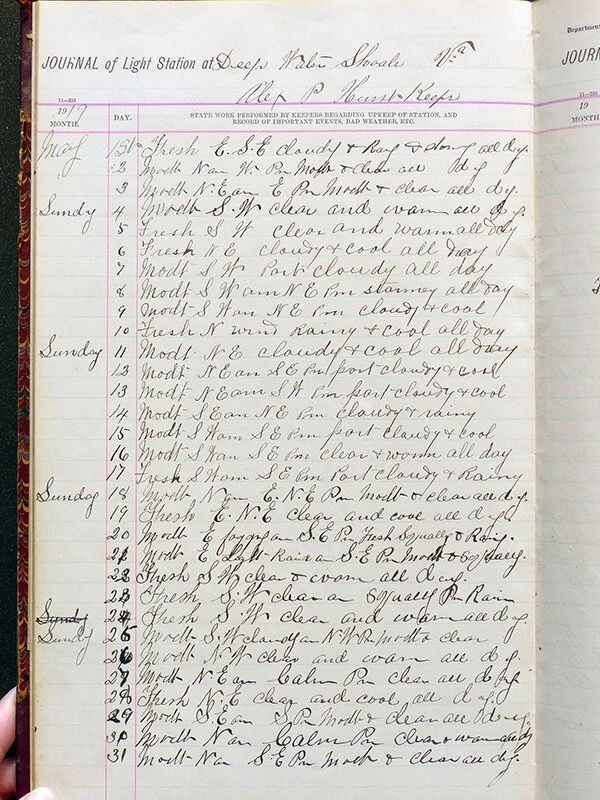 JOURNAL of Light Station at Deep Water Shoals Va
Alex P Hurst Keeper
11—308
1919
MONTH.
DAY.
STATE WORK PERFORMED BY KEEPERS REGARDING UPKEEP OF STATION, AND
RECORD OF IMPORTANT EVENTS, BAD WEATHER, ETC.
May 1st Fresh E. S. E cloudy & all day.
2 Modt N am W. Pm Modt & clear all day
3 Modt N. E am E Pm Modt & clear all day.
Sundy 4 Modt S. W clear and warm all day.
5 Fresh S W clear and warm all day
6 Fresh N E cloudy & cool all day
7 Modt S W Part cloudy all day
8 Modt S W am N E Pm all day
9 Modt S W am N E Pm cloudy & cool
10 Fresh N wind Rainy & cool all day
Sunday 11 Modt N E cloudy & cool all day
12 Modt N E am S E Pm part cloudy & cool
13 Modt N E am S W Pm part cloudy & cool
14 Modt S E am N E Pm cloudy & rainy
15 Modt S W am S E Pm part cloudy & cool
16 Modt S W am S E Pm clear & warm all day
17 Fresh S W am S E Pm Part cloudy & Rainy
Sunday 18 Modt N am E. N. E Pm Modt & clear all day.
19 Fresh E. N. E clear and cool all day.
20 Modt E foggy am S. E Pm Fresh Squally & Rainy.
21 Modt E Light Rain am S. E Pm Modt & Squally.
22 Fresh S W clear & warm all day.
23 Fresh S. W clear am Squally Pm Rain
Sundy 24 Fresh S. W clear and warm all day.
Sundy 25 Modt S. W cloudy am N. W Pm modt & clear
26 Modt N. W clear and warm all day.
27 Modt N. E am Calm Pm clear all day
28 Fresh N. E clear and cool all day.
29 Modt S. E am S. Pm Modt & clear all day.
30 Modt N am Calm Pm clear & warm all day
31 Modt N am S. E Pm Modt & clear all day.
Department
JOURN
11—308
19
MONTH